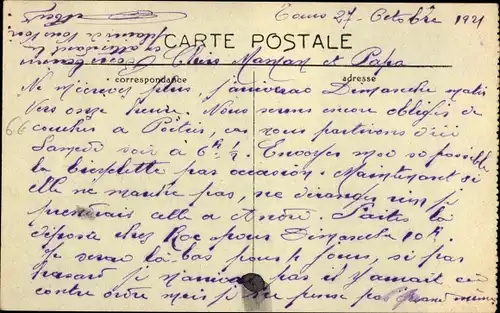 Tours 27 Octobre 1921
CARTE POSTALE
Chers Maman et Papa
correspondance adresse
Ne m'écrivez plus, j'arriverai Dimanche matin
vers onze heures. Nous serons encore obligés de
coucher à Poitiers, car nous partirons d'ici
Samedi soir à 6h 1/2. Envoyez moi si possible
la bicyclette par occasion. Maintenant si
elle ne marche pas, ne dérangez rien je
prendrais celle à André. Faites la
déposer chez Roc pour Dimanche 10h.
Je serai là-bas pour 4 jours, si par
hasard je n'arrivais pas il y aurait eu
contre ordre mais je ne pense pas quand même